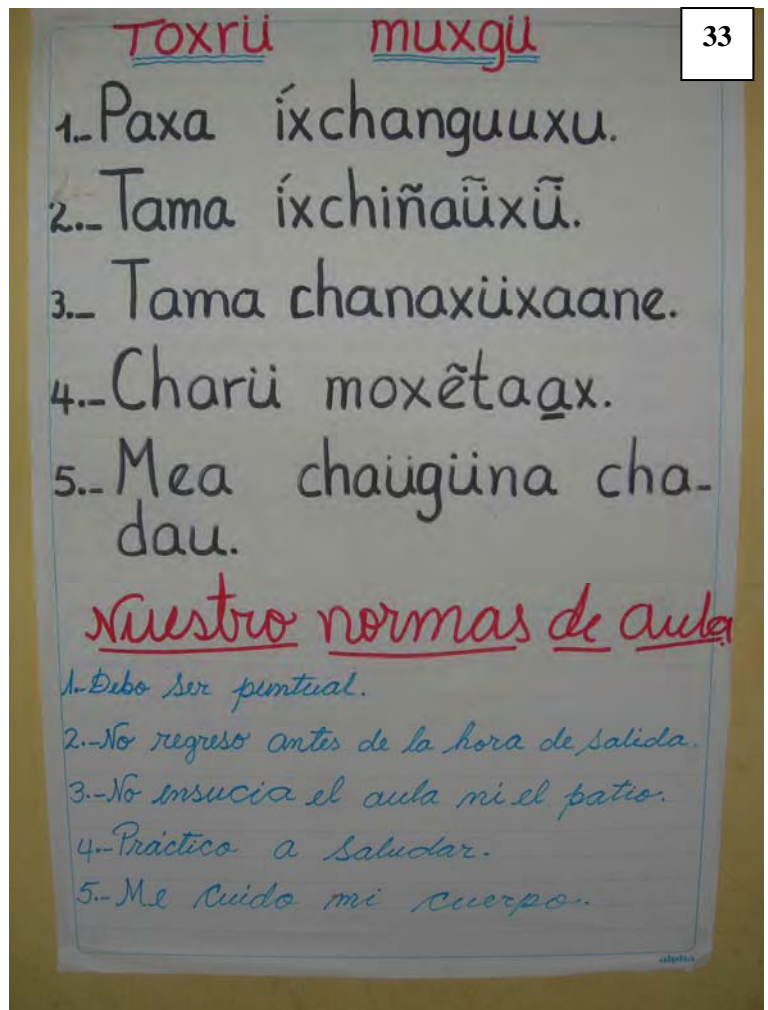 33
Toxrü muxgü
1.-Paxa íxchanguuxu.
2.-Tama íxchiñaü̃xü̃.
3.- Tama chanaxüxaane.
4.-Charü moxẽtaa̲x.
5.-Mea chaügüna cha-
dau.
Nuestro normas de aula
1.-Debo ser puntual.
2.-No regreso antes de la hora de salida.
3.-No ensucia el aula ni el patio.
4.-Práctico a saludar.
5.-Me cuido mi cuerpo.
alpha